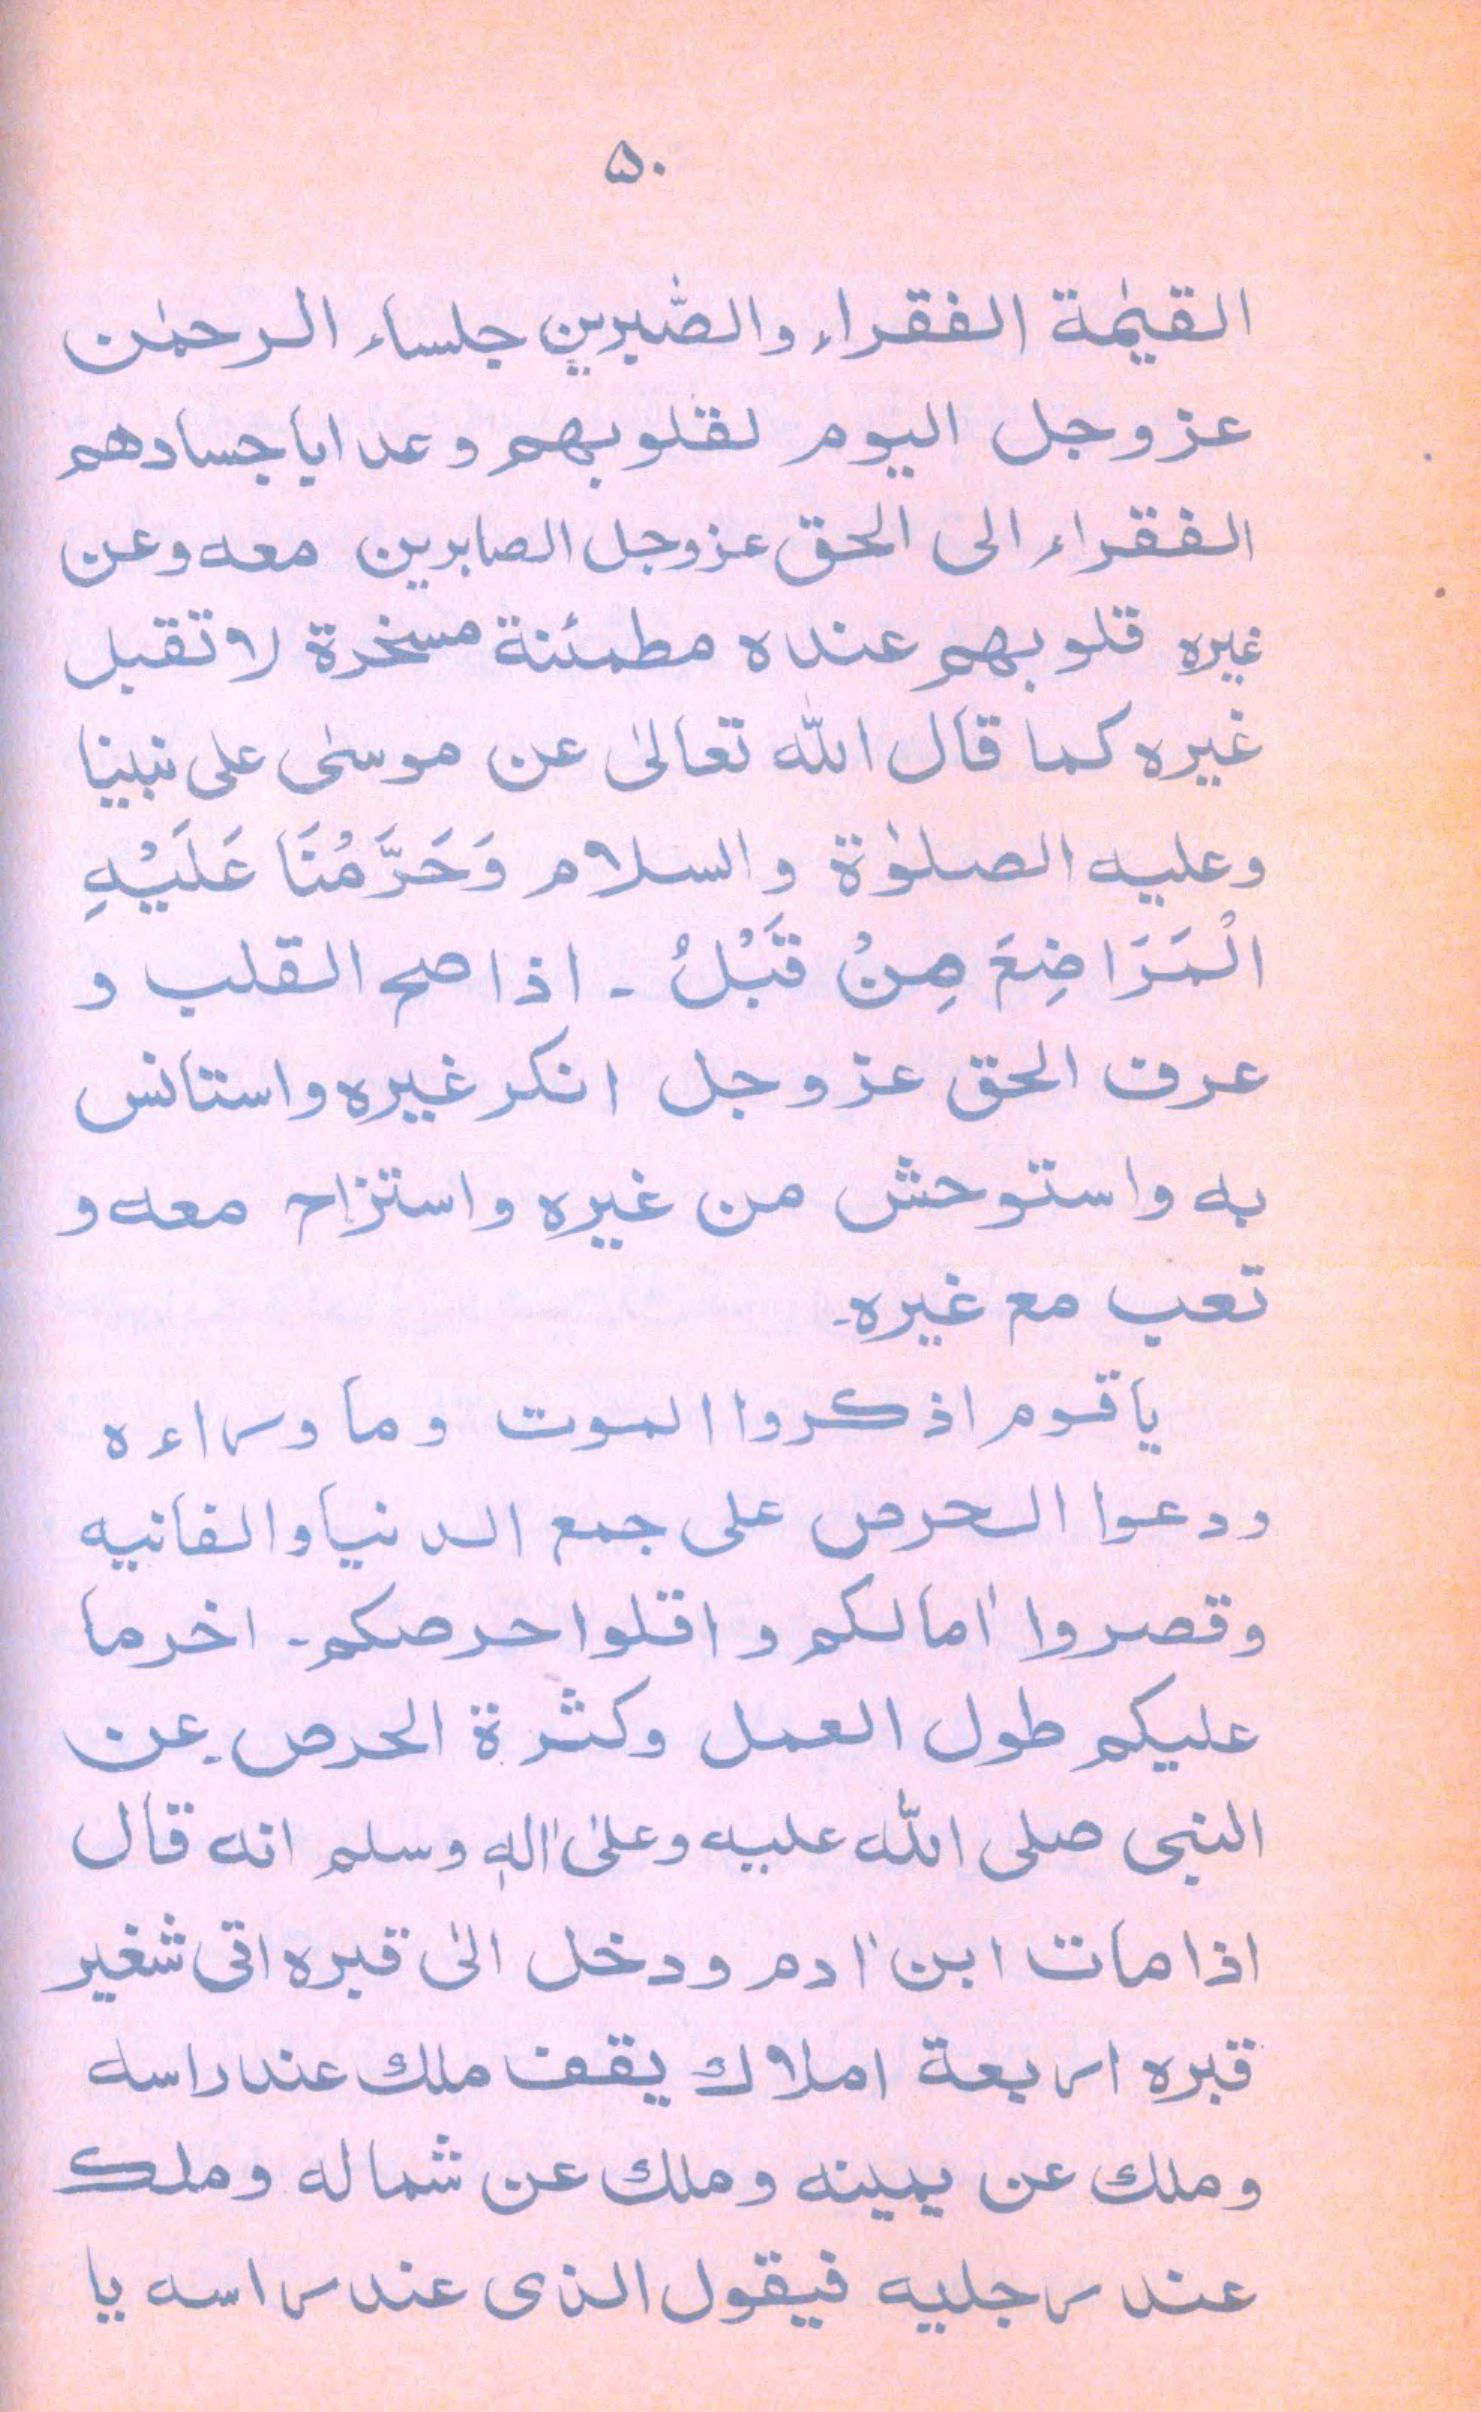 ۵۰
القیٰمة الفقراء والصّٰبرین جلساء الرحمٰن
عز وجل الیوم لقلوبهم وعدا باجسادهم
الفقراء الی الحق عز وجل الصابرین معه وعن
غیره قلوبهم عنده مطمئنة مسخرة لا تقبل
غیره کما قال اللّٰه تعالیٰ عن موسیٰ علی نبینا
وعلیه الصلوٰة والسلام وَحَرَّمْنَا عَلَیْهِ
الْمَرَاضِعَ مِنْ قَبْلُ ۔ اذا صح القلب و
عرف الحق عز وجل انکر غیره واستانس
به واستوحش من غیره واستزاح معه و
تعب مع غیره۔
یا قوم اذکروا الموت وما وراءه
ودعوا الحرص علی جمع الدنیا والفانیه
وقصروا اٰمالکم واقلوا حرصکم۔ اخر ما
علیکم طول العمل وکثرة الحرص۔ عن
النبی صلی اللّٰه علیه وعلیٰ اٰلهٖ وسلم انه قال
اذا مات ابن اٰدم ودخل الیٰ قبره اتی شغیر
قبره اربعة املاك یقف ملك عند راسه
وملك عن یمینه وملك عن شماله وملك
عند رجلیه فیقول الذی عند راسه یا